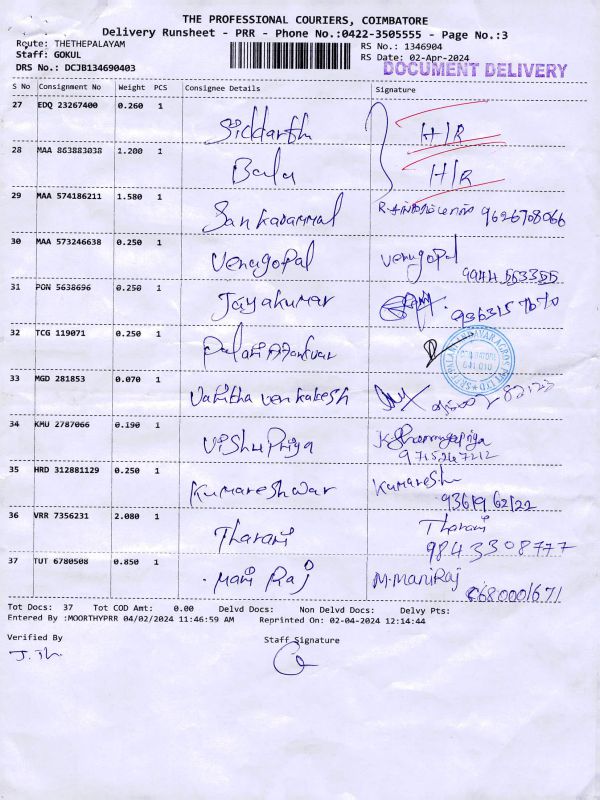 THE PROFESSIONAL COURIERS, COIMBATORE
Delivery Runsheet - PRR - Phone No.:0422-3505555 - Page No.:3
Route: THETHEPALAYAM
RS No.: 1346904
Staff: GOKUL
RS Date: 02-Apr-2024
DRS No.: DCJB134690403
DOCUMENT DELIVERY
S No Consignment No Weight PCS Consignee Details Signature
27 EDQ 23267400 0.260 1 Siddarth H/R
28 MAA 863883038 1.200 1 Bala H/R
29 MAA 574186211 1.580 1 Sankarammal 9626708066
30 MAA 573246638 0.250 1 Venugopal Venugopal
9944 563355
31 PON 5638696 0.250 1 Jayakumar 9363157670
32 TCG 119071 0.250 1
33 MGD 281853 0.070 1 Vanitha venkatesh
34 KMU 2787066 0.190 1 Vishu Priya
9715267212
35 HRD 312881129 0.250 1 Kumareshwar Kumaresh
9361962122
36 VRR 7356231 2.080 1 Tharani Tharani
9843308777
37 TUT 6780508 0.850 1 Mani Raj M.ManiRaj
Tot Docs: 37 Tot COD Amt: 0.00 Delvd Docs: Non Delvd Docs: Delvy Pts:
Entered By :MOORTHYPRR 04/02/2024 11:46:59 AM Reprinted On: 02-04-2024 12:14:44
Verified By Staff Signature